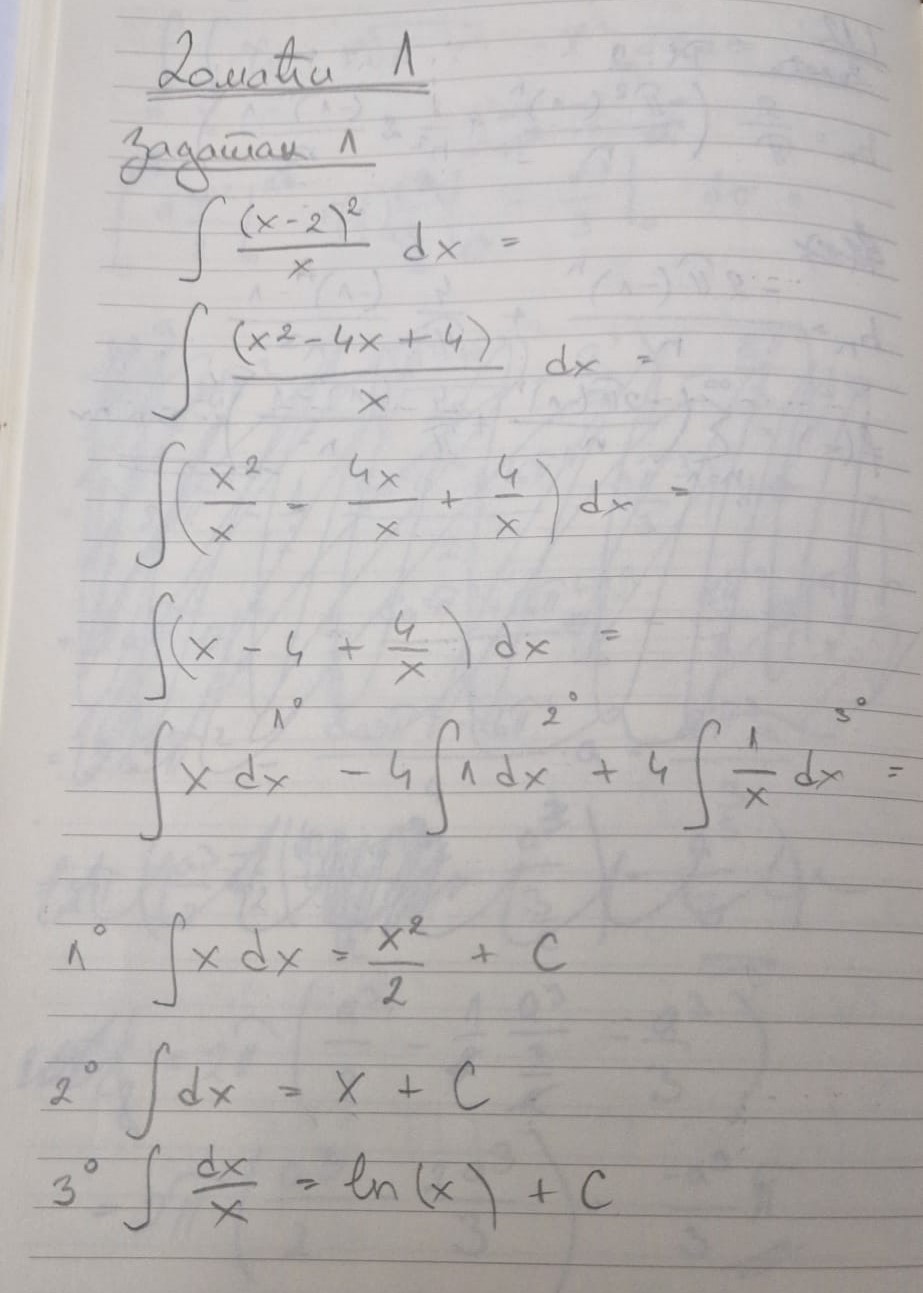 Домаћи 1
Задатак 1
∫ (x-2)²/x dx =
∫ (x²-4x+4)/x dx =
∫(x²/x - 4x/x + 4/x) dx =
∫(x - 4 + 4/x) dx =
∫ x dx 1° - 4∫ 1 dx 2° + 4∫ 1/x dx 3° =
1° ∫ x dx = x²/2 + C
2° ∫ dx = x + C
3° ∫ dx/x = ln(x) + C